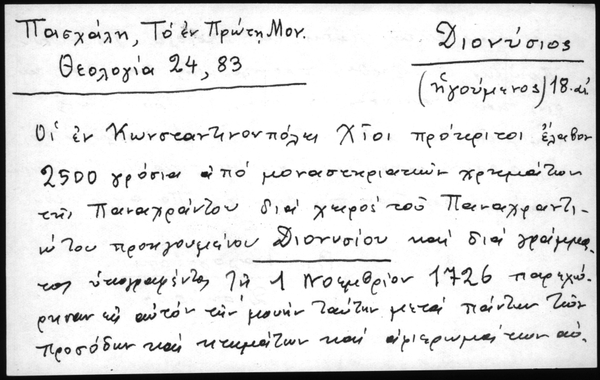 Πασχάλη, Τὸ ἐν Πρώτῃ Μον.
Θεολογία 24, 83
Διονύσιος
(ἡγούμενος) 18. αἰ
Οἱ ἐν Κωνσταντινουπόλει Χῖοι πρόκριτοι ἔλαβον
2500 γρόσια ἀπό μοναστηριακῶν χρημάτων
τῆς Παναχράντου διά χειρός τοῦ Παναχραντι-
ώτου προηγουμένου Διονυσίου καί διά γράμμα-
τος ὑπογραφέντος τῇ 1 Νοεμβρίου 1726 παρεχώ-
ρησαν εἰς αὐτόν τήν μονήν ταύτην μετά πάντων τῶν
προσόδων καί κτημάτων καί ἀφιερωμάτων αὐ-